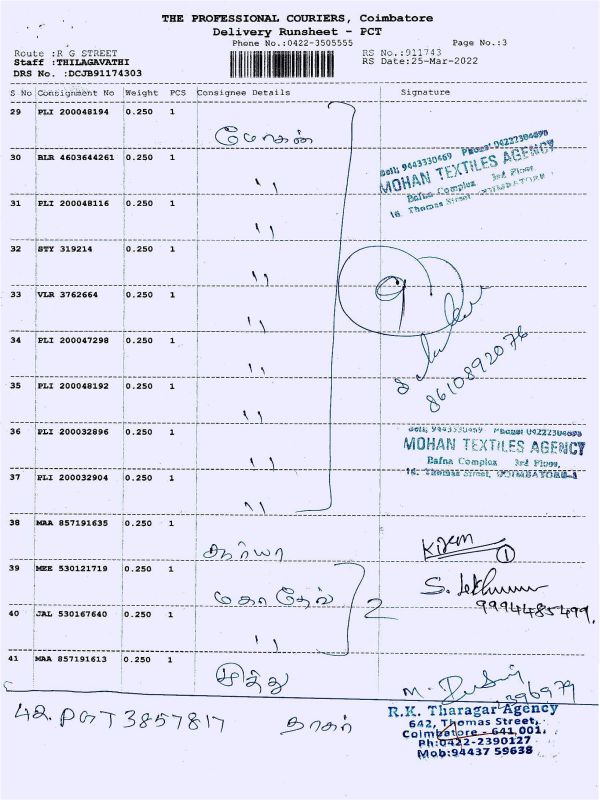 THE PROFESSIONAL COURIERS, Coimbatore
Delivery Runsheet - PCT
Phone No.:0422-3505555
Page No.:3
Route :R G STREET
RS No.:911743
Staff :THILAGAVATHI
RS Date:25-Mar-2022
DRS No. :DCJB91174303
S No Consignment No Weight PCS Consignee Details Signature
29 PLI 200048194 0.250 1
மோகன்
30 BLR 4603644261 0.250 1
〃
Cell; 9443330469 Phone: 04222304698
MOHAN TEXTILES AGENCY
Bafna Complex 3rd Floor,
16, Thomas Street, COIMBATORE-1
31 PLI 200048116 0.250 1
〃
32 STY 319214 0.250 1
〃
9
33 VLR 3762664 0.250 1
〃
34 PLI 200047298 0.250 1
〃
8610892076
35 PLI 200048192 0.250 1
〃
36 PLI 200032896 0.250 1
〃
Cell; 9443330469 Phone: 04222304698
MOHAN TEXTILES AGENCY
Bafna Complex 3rd Floor,
16, Thomas Street, COIMBATORE-1
37 PLI 200032904 0.250 1
〃
38 MAA 857191635 0.250 1
1
39 MEE 530121719 0.250 1
மகாதேவ்
2
S.
9994485499.
40 JAL 530167640 0.250 1
〃
41 MAA 857191613 0.250 1
முத்து
M.
42. PGT 3857817 தாகர்
R.K. Tharagar Agency
642, Thomas Street,
Coimbatore - 641 001.
Ph:0422-2390127
Mob:94437 59638